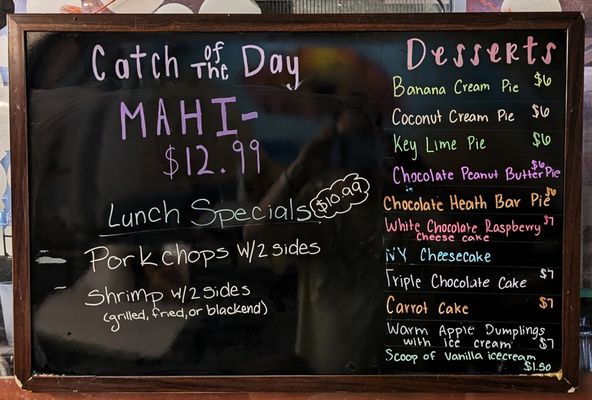 Catch of The Day
MAHI-
$12.99
Lunch Specials $10.99
Pork chops w/2 sides
Shrimp w/2 sides
(grilled, fried, or blackend)
Desserts
Banana Cream Pie $6
Coconut Cream Pie $6
Key Lime Pie $6
Chocolate Peanut Butter Pie $6
Chocolate Heath Bar Pie $6
White Chocolate Raspberry $7
cheese cake
NY Cheesecake
Triple Chocolate Cake $7
Carrot Cake $7
Warm Apple Dumplings
with ice cream $7
Scoop of vanilla icecream
$1.50